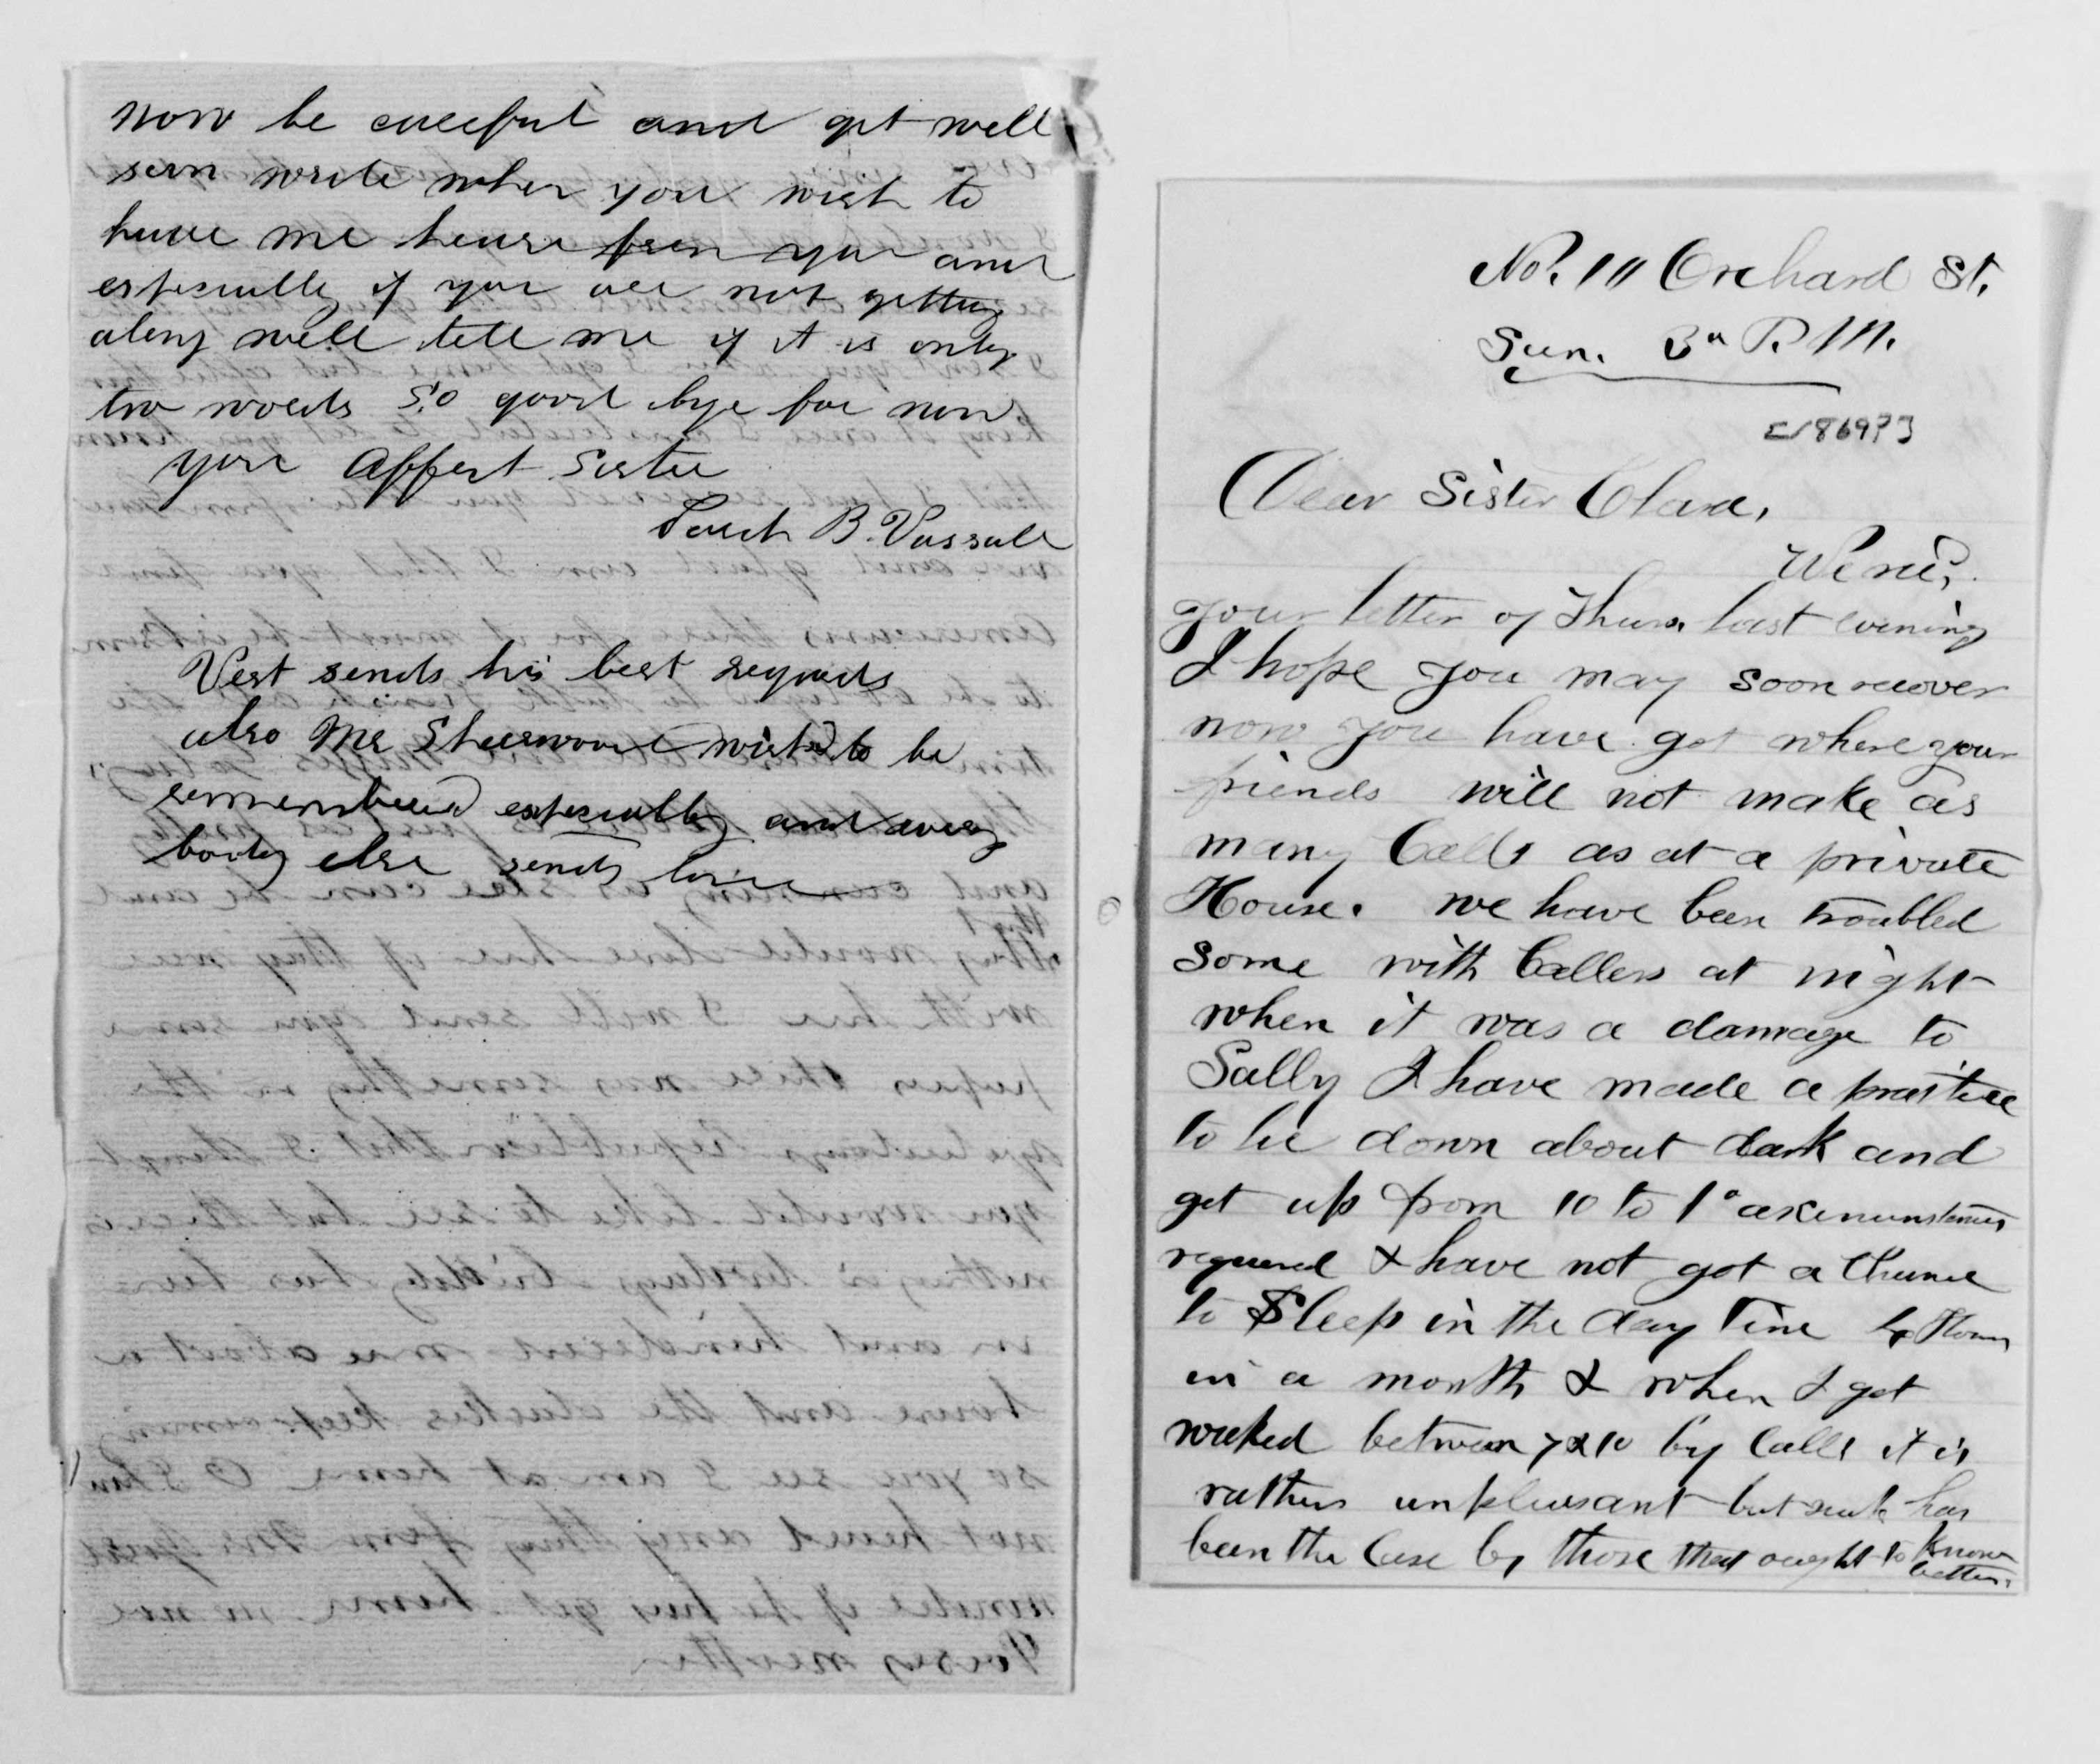 now be careful and get well
soon write when you wish to
have me hear from you and
especially if you are not getting
along well tell me if it is only
two words So good bye for now
your Affect Sister
B. Vassall
Vest sends his best regards
also Mr Sheerwood wishes to be
remembered especially and every
body else sends love
No. 10 Orchard St.
Sun. P. M.
[1869?]
Dear Sister Clara,
your letter of Thurs. last evening
I hope you may soon recover
now you have got where your
friends will not make as
many Calls as at a private
House. we have been troubled
some with Callers at night
when it was a damage to
Sally I have made a practice
to lie down about dark and
get up from 10 to 1° as circumstances
required & have not got a Chance
to Sleep in the day time
in a month & when I get
waked between 7 & 10 by Calls it is
rather unpleasant but such has
been the Case by those that ought to know
better.